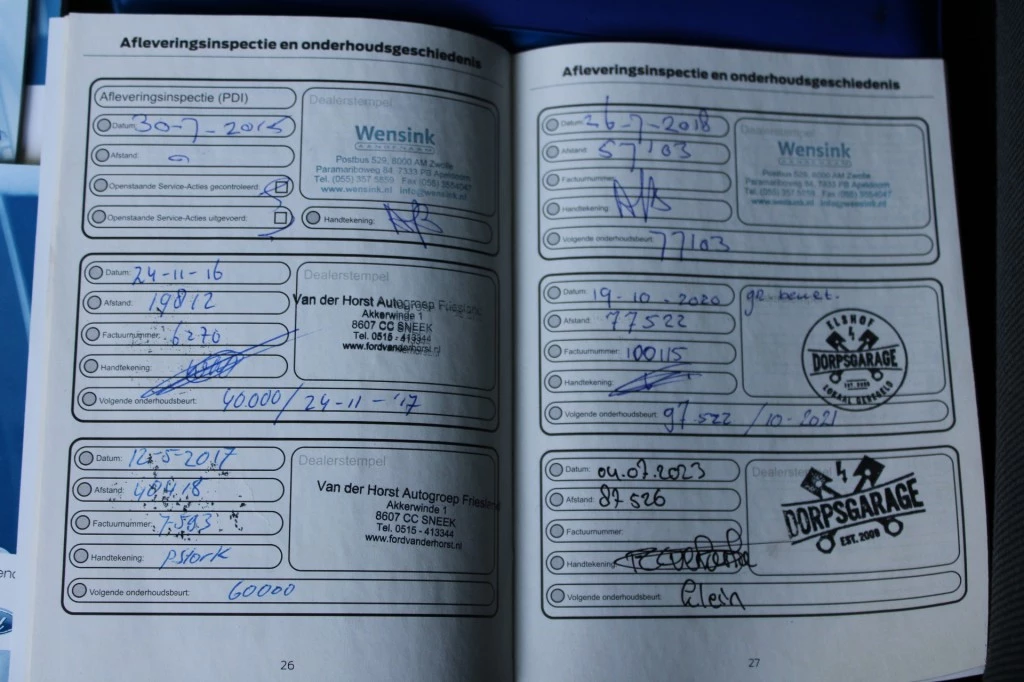 Afleveringsinspectie en onderhoudsgeschiedenis
Afleveringsinspectie (PDI)
Datum: 30-7-2015
Afstand: 0
Openstaande Service-Acties gecontroleerd:
Openstaande Service-Acties uitgevoerd:
Dealerstempel
Wensink
Postbus 529, 8000 AM Zwolle
Paramariboweg 84, 7333 PB Apeldoorn
www.wensink.nl
Handtekening:
Datum: 24-11-16
Afstand: 19812
Factuurnummer: 6270
Handtekening:
Volgende onderhoudsbeurt: 40.000/24-11-'17
Dealerstempel
Van der Horst Autogroep Friesland
Akkerwinde 1
8607 CC SNEEK
Tel. 0515 - 413344
www.fordvanderhorst.nl
Datum: 12-5-2017
Afstand:
Factuurnummer: 7593
Handtekening: P Stork
Volgende onderhoudsbeurt: 60000
Dealerstempel
Van der Horst Autogroep Friesland
Akkerwinde 1
8607 CC SNEEK
Tel. 0515 - 413344
www.fordvanderhorst.nl
26
Afleveringsinspectie en onderhoudsgeschiedenis
Datum: 26-7-2018
Afstand: 57103
Factuurnummer:
Handtekening:
Volgende onderhoudsbeurt: 77103
Dealerstempel
Wensink
Postbus 529, 8000 AM Zwolle
Paramariboweg 84, 7333 PB Apeldoorn
www.wensink.nl
Datum: 19-10-2020
Afstand: 77522
Factuurnummer: 100115
Handtekening:
Volgende onderhoudsbeurt: 97.522 /10-2021
gr. beurt.
ELSHOF
DORPSGARAGE
EST. 2009
Datum: 04.07.2023
Afstand: 87526
Factuurnummer:
Handtekening:
Volgende onderhoudsbeurt: Klein
Dealerstempel
DORPSGARAGE
EST. 2009
27